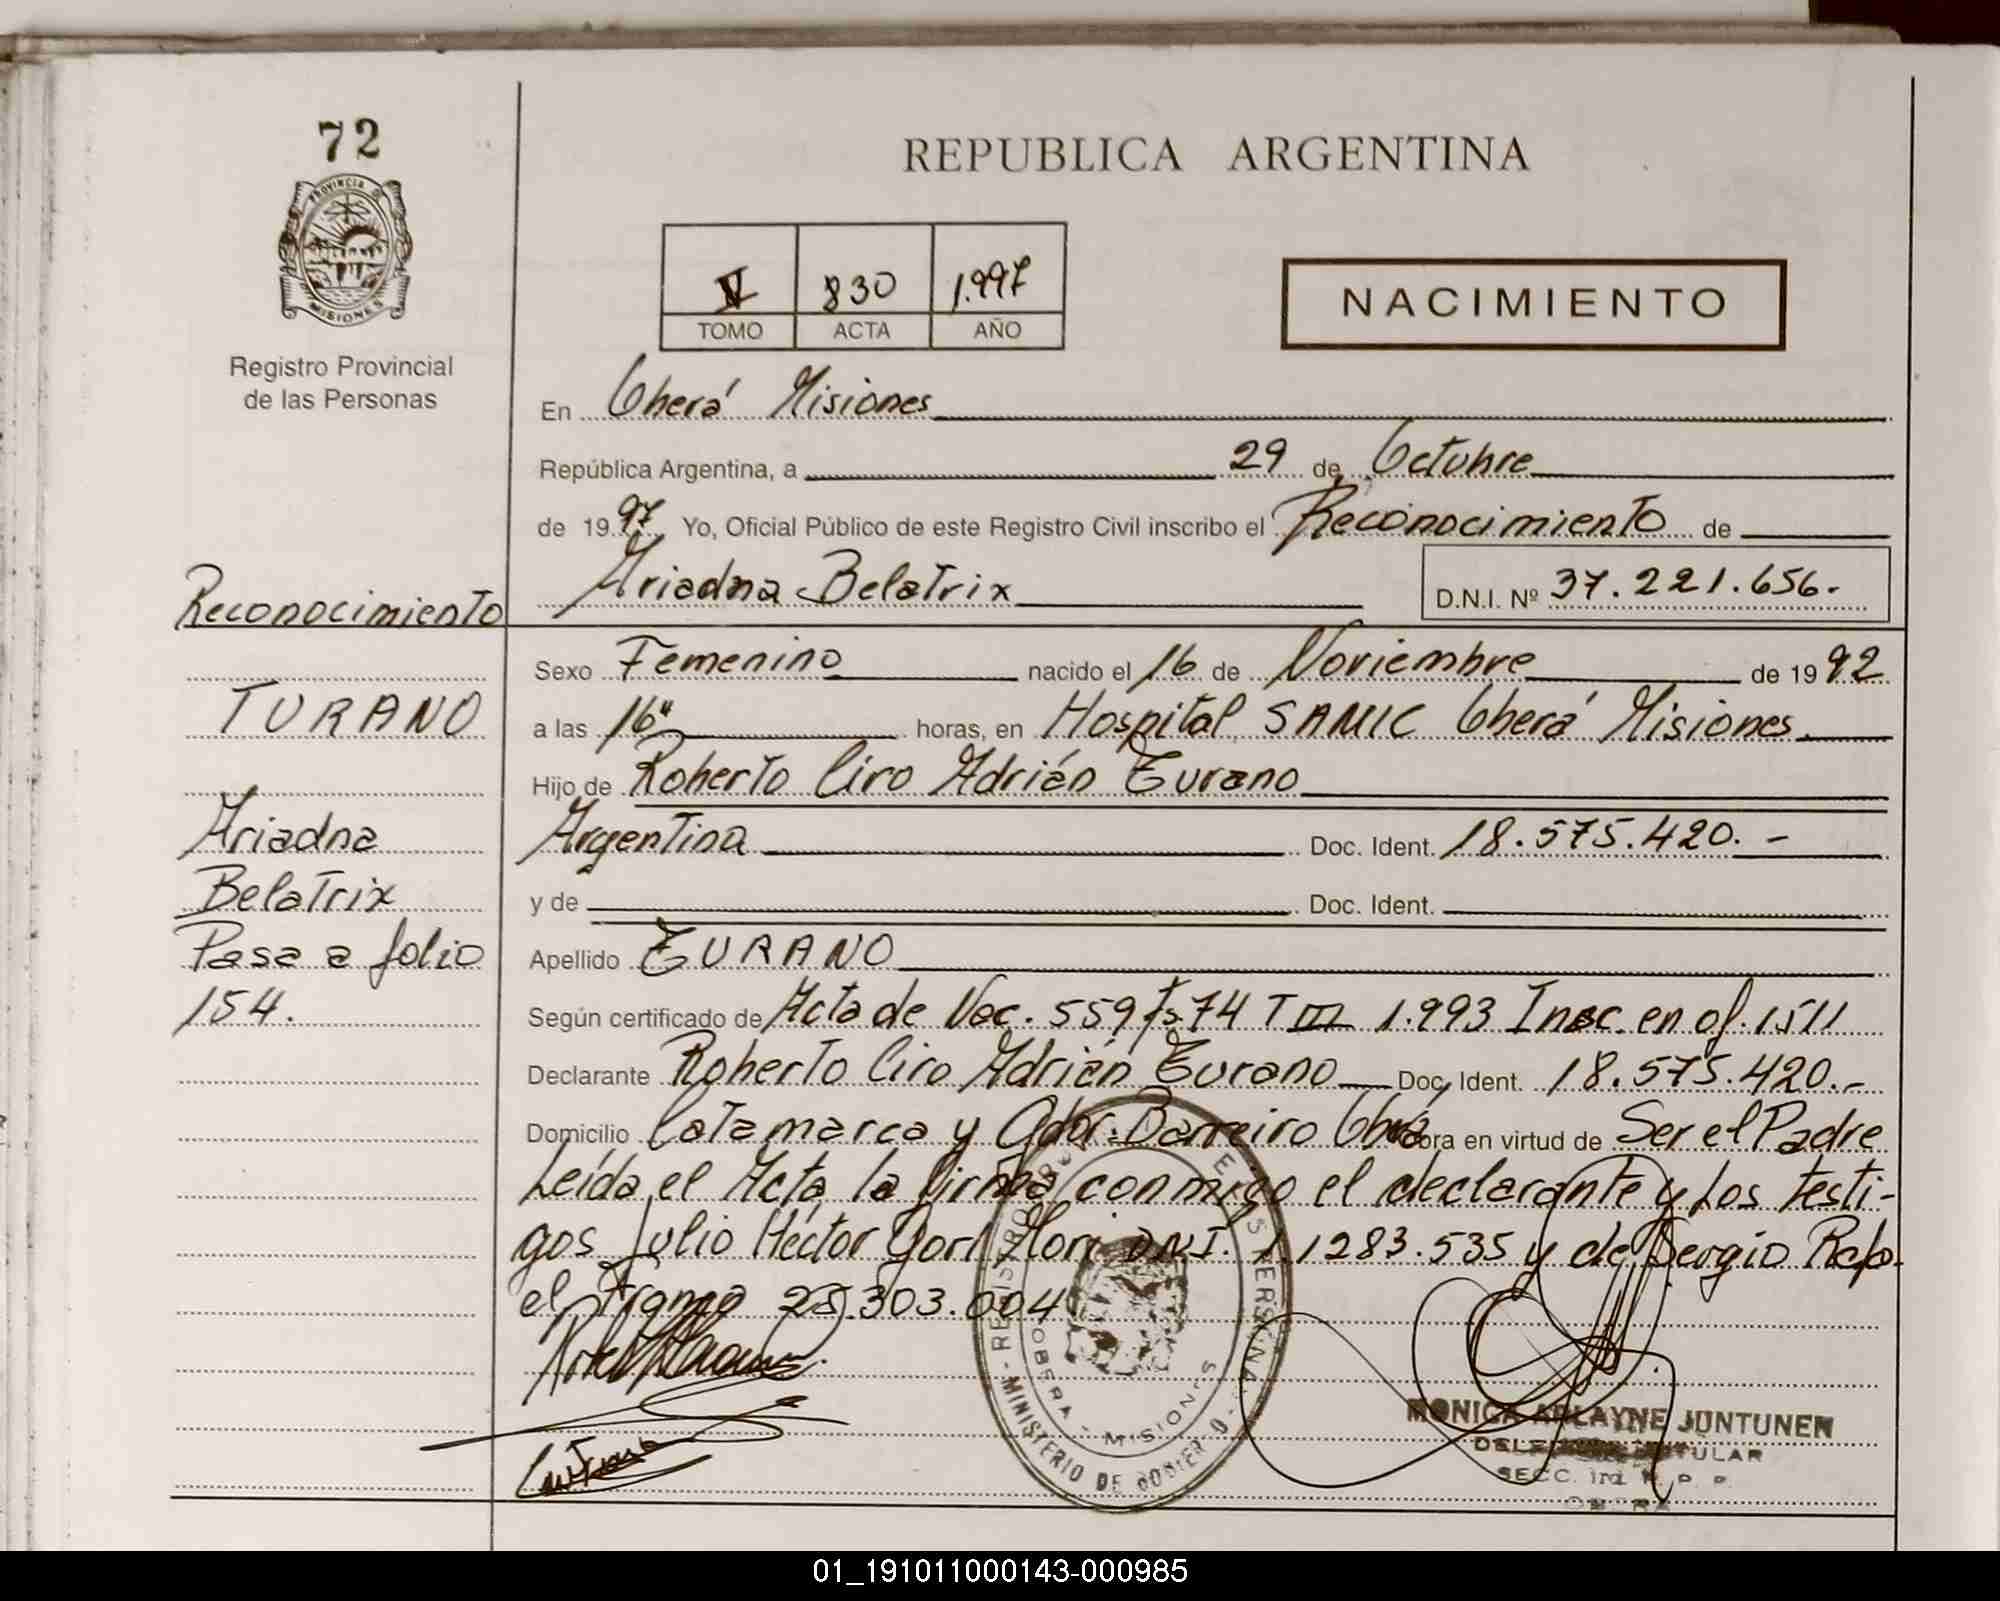 72
PROVINCIA D
MISIONES
Registro Provincial
de las Personas
REPUBLICA ARGENTINA
V 830 1.997
TOMO ACTA AÑO
NACIMIENTO
En Oberá Misiones
República Argentina, a 29 de Octubre
de 1997 Yo, Oficial Público de este Registro Civil inscribo el Reconocimiento de
Ariadna Belatrix D.N.I. Nº 37.221.656.-
Reconocimiento
Sexo Femenino nacido el 16 de Noviembre de 1992
TURANO
a las 16" horas, en Hospital SAMIC Oberá Misiones
Hijo de Roberto Ciro Adrián Turano
Ariadna
Argentina Doc. Ident. 18.575.420.-
Belatrix
y de Doc. Ident.
Pasa a folio
Apellido TURANO
154.
Según certificado de Acta de Nac. 559 fs 74 T III 1.993 Insc. en of. 1511
Declarante Roberto Ciro Adrián Turano Doc. Ident. 18.575.420.-
Domicilio Catamarca y Gdor. Barreiro Oberá obra en virtud de Ser el Padre
Leída el Acta la firma conmigo el declarante y los testi-
gos Julio Héctor Gori Mori D.N.I. 11283.535 y de Sergio Rafa-
el Franco 25.303.004
REGISTRO PROV DE LAS PERSONAS
OBERA - MISIONES
MINISTERIO DE GOBIERNO
MONICA JUNTUNEN
TITULAR
SECC. 1ra. R. P. P.
OBERA
01_191011000143-000985